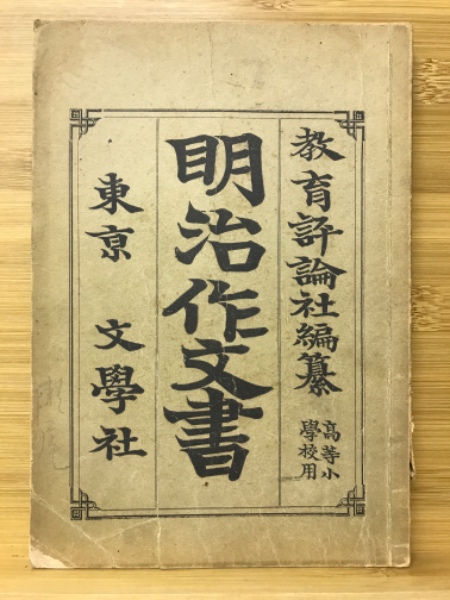 教育評論社編纂
高等小
學校用
明治作文書
東亰 文學社